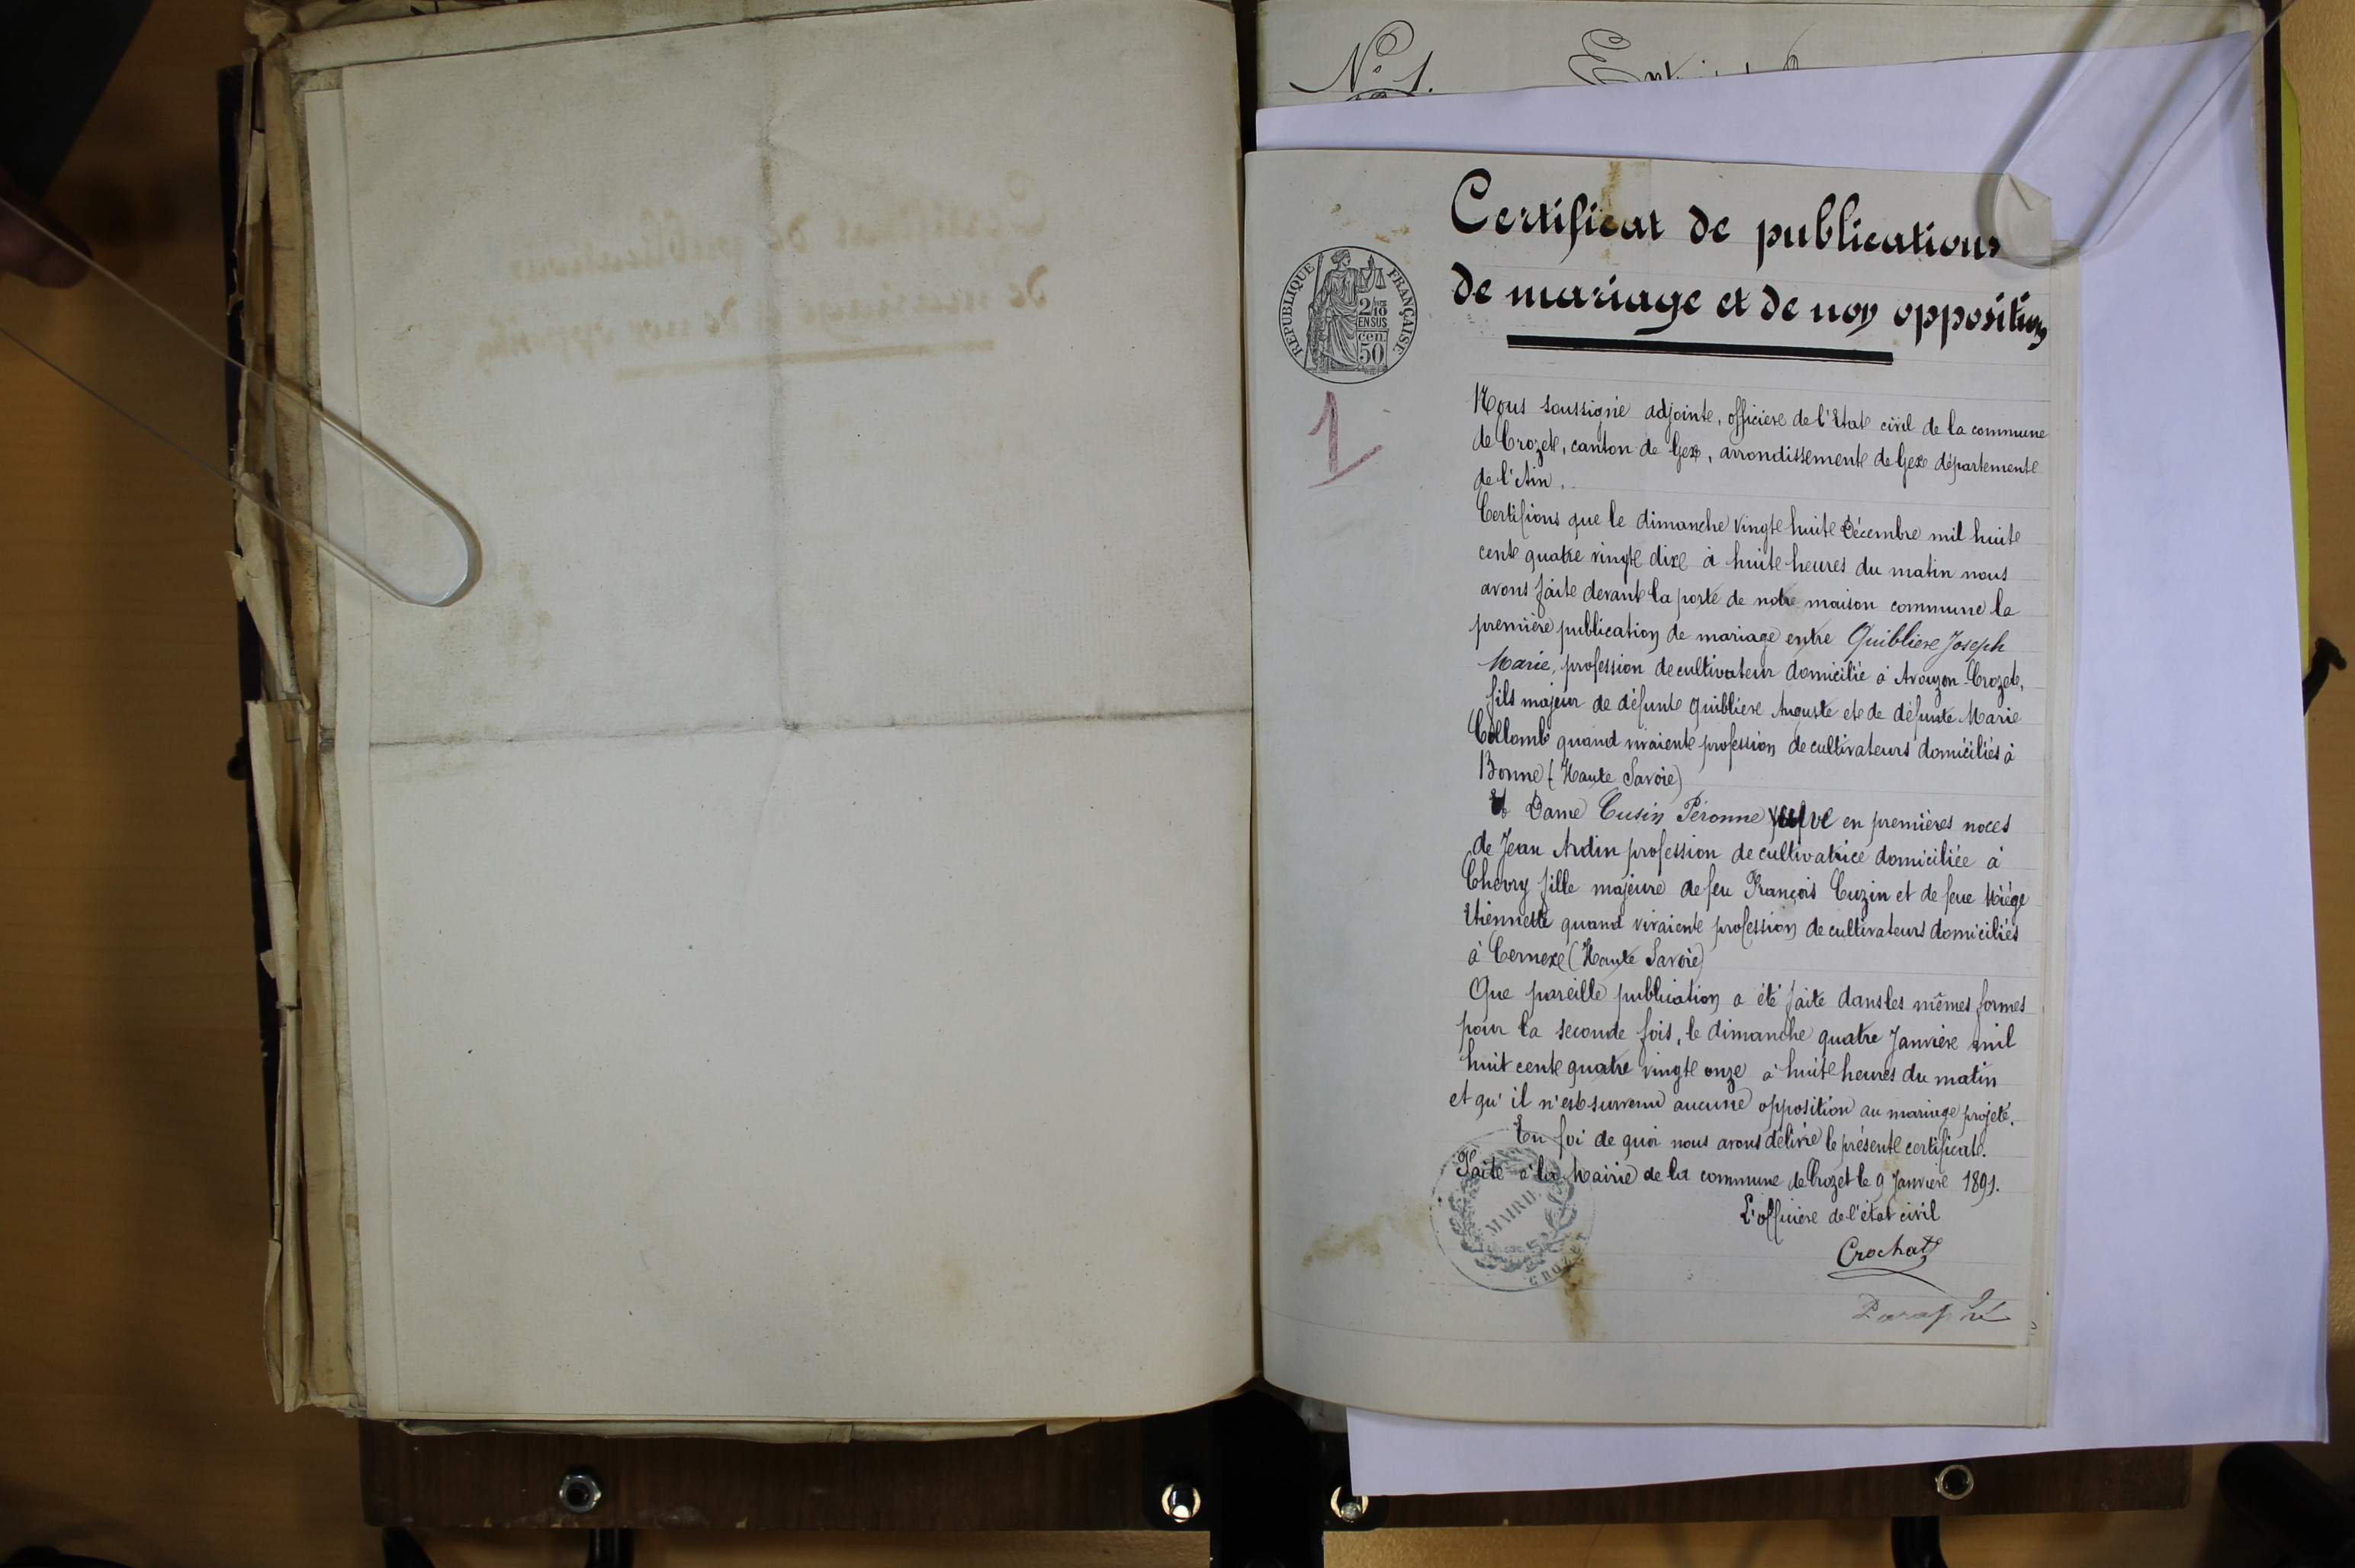 N° 1.
Certificat de publications
de mariage et de non opposition
RÉPUBLIQUE FRANÇAISE
2/10
EN SUS
cen.
50
1
Nous soussigné adjoint, officier de l'État civil de la commune
de Crozet, canton de Gex, arrondissement de Gex département
de l'Ain.
Certifions que le dimanche vingt huit Décembre mil huit
cent quatre vingt dix à huit heures du matin nous
avons fait devant la porte de notre maison commune la
première publication de mariage entre Quiblier Joseph
Marie, profession de cultivateur domicilié à Avouzon-Crozet,
fils majeur de défunt Quiblier Auguste et de défunte Marie
Collomb quand vivaient profession de cultivateurs domiciliés à
Bonne (Haute Savoie)
Et Dame Cusin Péronne veuve en premières noces
de Jean Ardin profession de cultivatrice domiciliée à
Chevry fille majeure de feu François Cuzin et de feue Miège
Etiennette quand vivaient profession de cultivateurs domiciliés
à Cernex (Haute Savoie)
Que pareille publication a été faite dans les mêmes formes
pour la seconde fois, le dimanche quatre Janvier mil
huit cent quatre vingt onze à huit heures du matin
et qu'il n'est survenu aucune opposition au mariage projeté.
En foi de quoi nous avons délivré le présent certificat.
Fait à la Mairie de la commune de Crozet le 9 Janvier 1891.
L'officier de l'état civil
MAIRIE
CROZET
Crochat
Paraphé